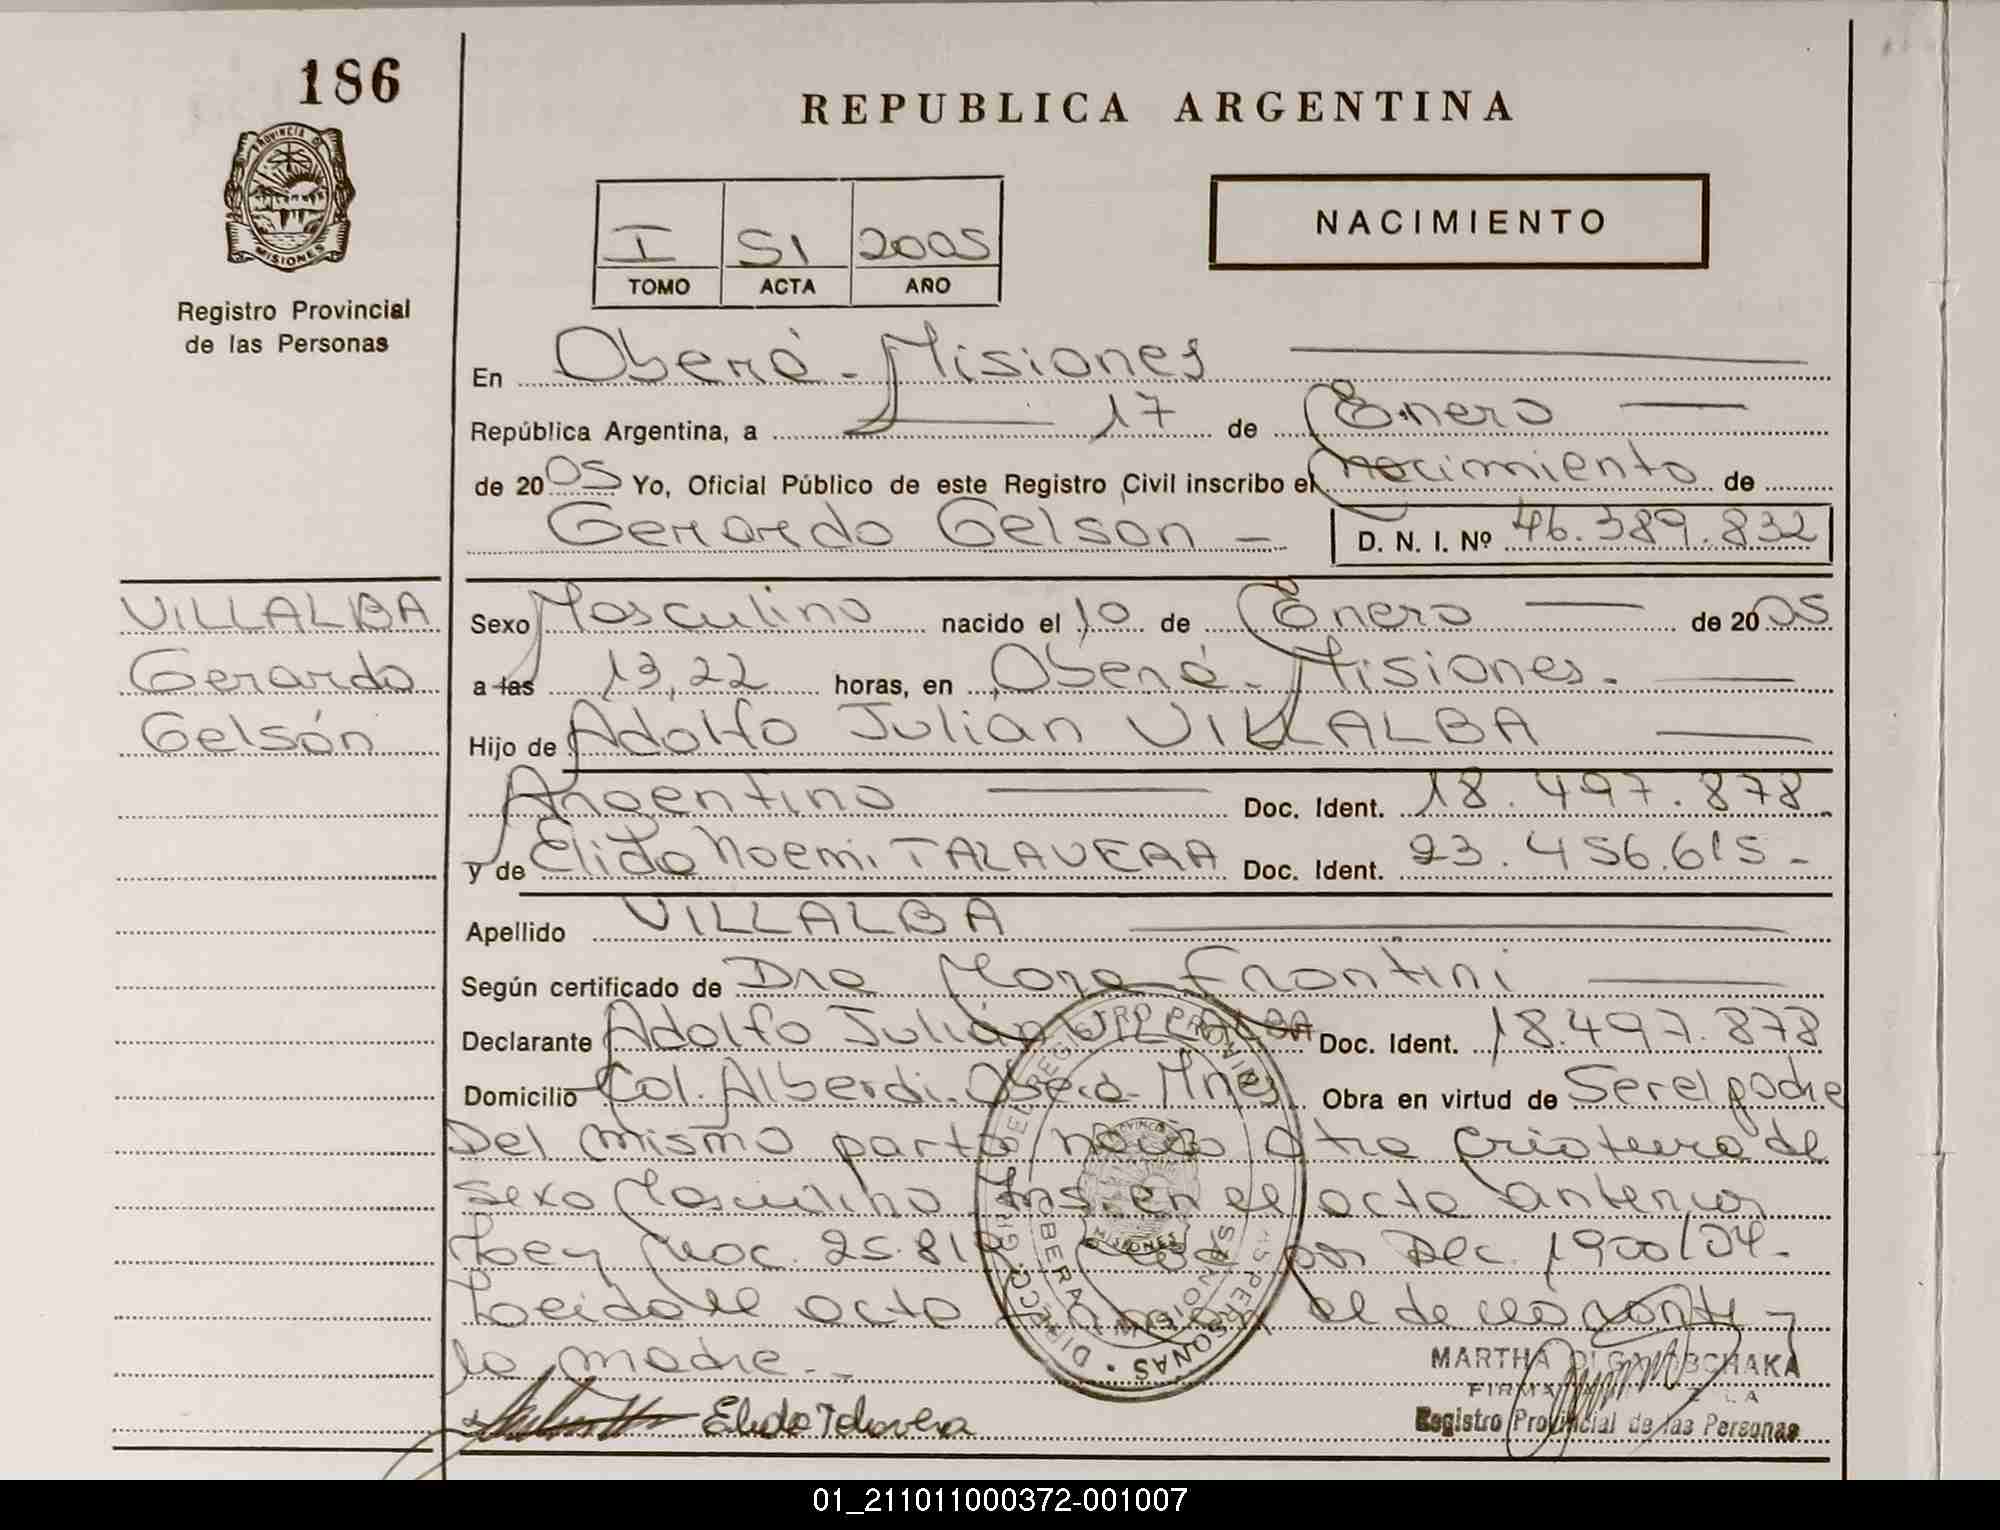 186
REPUBLICA ARGENTINA
PROVINCIA D
MISIONES
Registro Provincial
de las Personas
I 51 2005
TOMO ACTA AÑO
NACIMIENTO
En Oberá - Misiones
República Argentina, a 17 de Enero
de 2005 Yo, Oficial Público de este Registro Civil inscribo el nacimiento de
Gerardo Gelsón - D. N. I. Nº 46.389.832
VILLALBA
Gerardo
Gelsón
Sexo Masculino nacido el 10 de Enero de 2005
a las 13,22 horas, en Oberá - Misiones.
Hijo de Adolfo Julián VILLALBA
Argentino Doc. Ident. 18.497.878
y de Elida Noemi TALAVERA Doc. Ident. 23.456.615 -
Apellido VILLALBA
Según certificado de Dra Mora Frontini
Declarante Adolfo Julián VILLALBA Doc. Ident. 18.497.878
Domicilio Col. Alberdi. Oberá - Mnes Obra en virtud de Ser el padre
Del mismo parto nacio otra criatura de
sexo Masculino Ins. en el acta anterior
Ley Nac. 25.819 por Dec. 1900/04 -
Leida el acta el declarante y
la madre.-
Elida Talavera
MARTHA
Registro Provincial de las Personas
01_211011000372-001007